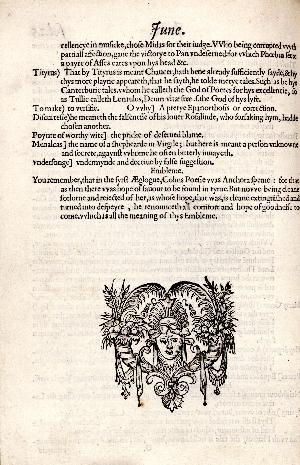 Iune.
cellencye in musicke, chose Midas for their iudge. VVho being corrupted vvyth
partiall affection, gaue the victorye to Pan vndeserued: for vvhich Phœbus sette
a payre of Asses eares vpon hys head &c.
Tityrus) That by Tityrus is meant Chaucer, hath bene already sufficiently sayde, & by
thys more playne appeareth, that he sayth, he tolde merye tales. Such as be hys
Canterburie tales. vvhom he calleth the God of Poetes for hys excellencie, so
as Tullie calleth Lentulus, Deum vitæ suæ .s. the God of hys lyfe.
To make) to versifie. O vvhy) A pretye Epanorthosis or correction.
Discurtesie) he meaneth the falsenesse of his louer Rosalinde, who forsaking hym, hadde
chosen another.
Poynte of worthy wite] the pricke of deserued blame.
Menalcas ] the name of a shephearde in Virgile; but here is meant a person vnknowne
and secrete, agaynst vvhome he often bitterly inuayeth.
vnderfonge] vndermynde and deceiue by false suggestion.
Embleme.
You remember, that in the fyrst Æglogue, Colins Poesie vvas Anchora speme : for that
as then there vvas hope of fauour to be found in tyme. But novve being cleane
forlorne and reiected of her, as whose hope, that was, is cleane extinguished and
turned into despeyre , he renounceth all comfort and hope of goodnesse to
come. vvhich is all the meaning of thys Embleme.